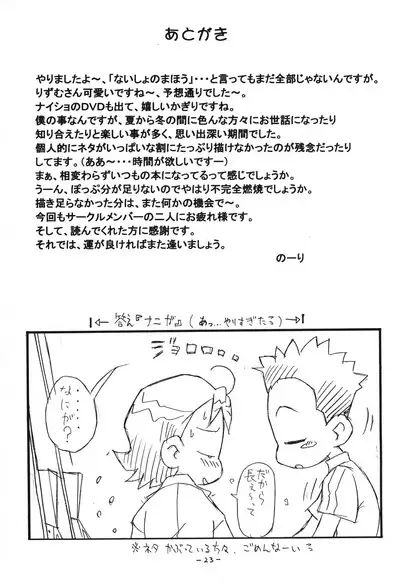 あとがき
やりましたよ～、「ないしょのまほう」・・・と言ってもまだ全部じゃないんですが。
りずむさん可愛いですね～、予想通りでした～。
ナイショのDVDも出て、嬉しいかぎりですね。
僕の事なんですが、夏から冬の間に色んな方々にお世話になったり
知り合えたりと楽しい事が多く、思い出深い期間でした。
個人的にネタがいっぱいな割にたっぷり描けなかったのが残念だったり
してます。（ああ～・・・時間が欲しいですー）
まぁ、相変わらずいつもの本になってるって感じでしょうか。
うーん、ぽっぷ分が足りないのでやはり不完全燃焼でしょうか。
描き足らなかった分は、また何かの機会で～。
今回もサークルメンバーの二人にお疲れ様です。
そして、読んでくれた方に感謝です。
それでは、運が良ければまた逢いましょう。
のーり
答え『ナニが』(あっ…やりすぎたろ)
ジョロロロ…
だから
長ぇ～って
・・・・・・
なにが？
※ネタかぶっている方々、ごめんなーいろ
-23-